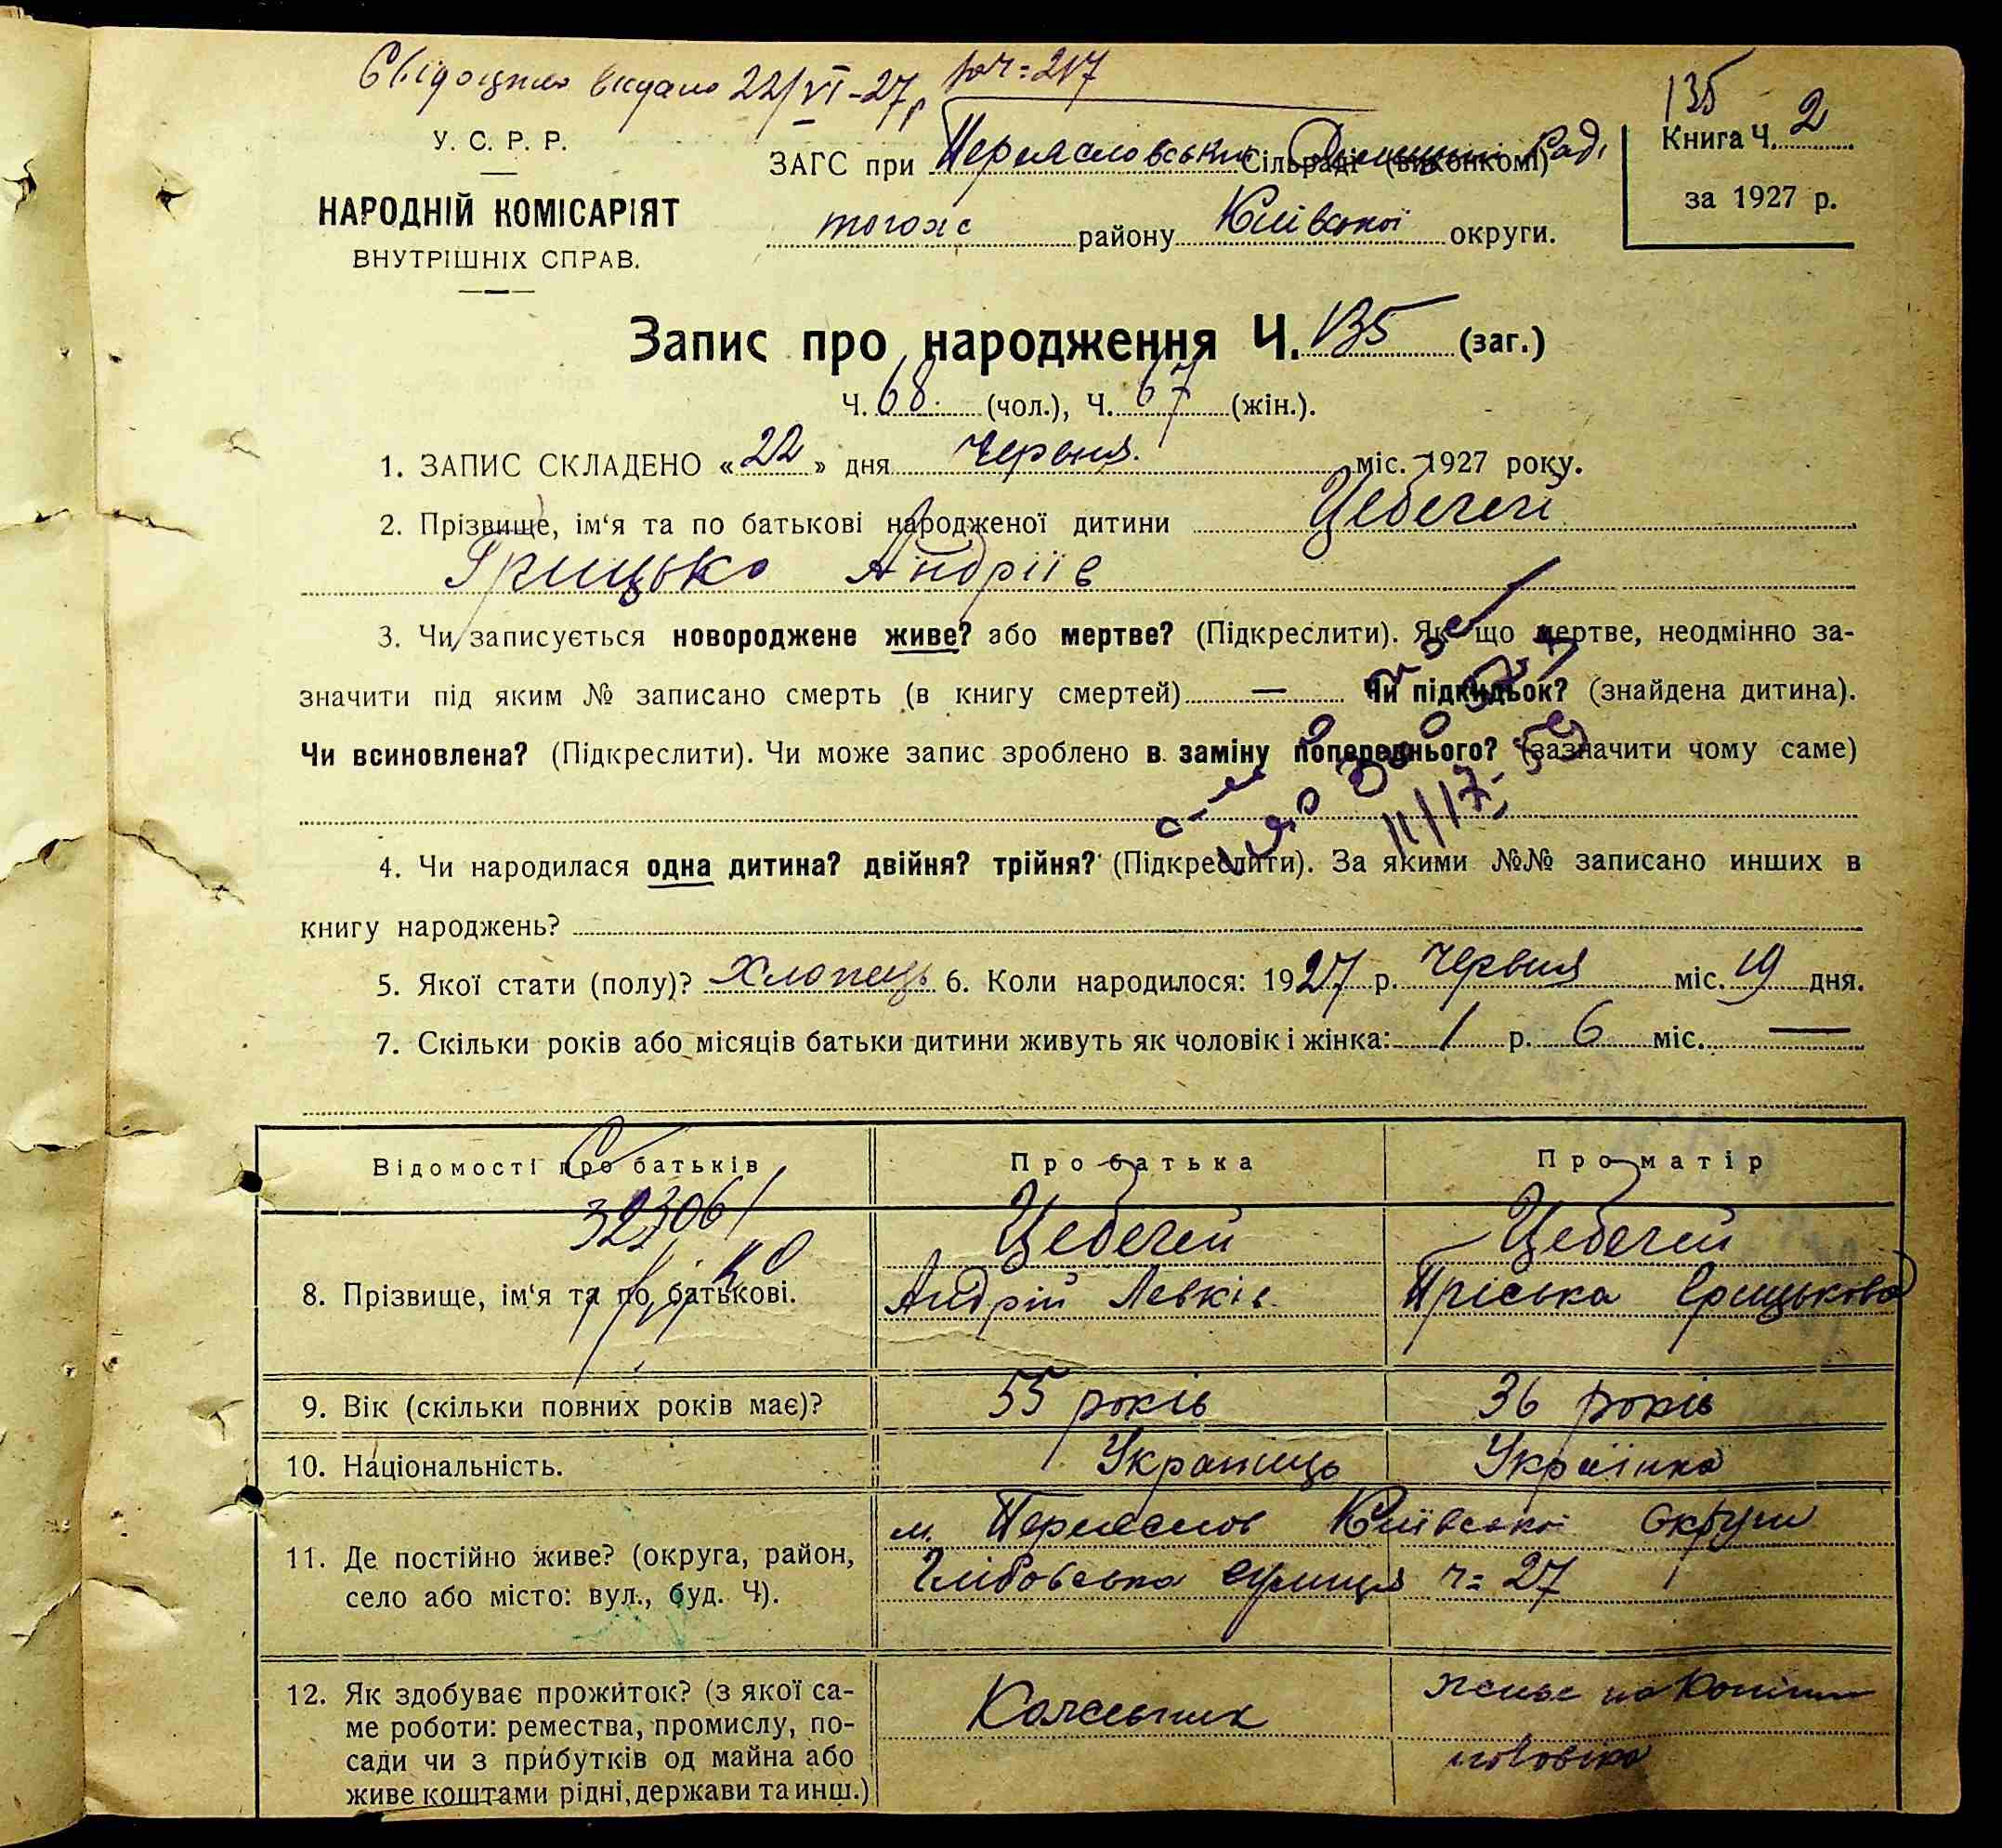 Свідоцтво видано 22/VI-27 р
135
У. С. Р. Р.
НАРОДНІЙ КОМІСАРІЯТ
ВНУТРІШНІХ СПРАВ.
ЗАГС при Переяславській Сільраді (виконкомі) Раді
тогож району Київської округи.
Книга Ч. 2
за 1927 р.
Запис про народження Ч. 135 (заг.)
Ч. 68 (чол.), Ч. 67 (жін.).
1. ЗАПИС СКЛАДЕНО «22» дня Червня міс. 1927 року.
2. Прізвище, ім‘я та по батькові народженої дитини Цебечей
Грицько Андріїв
3. Чи записується новороджене живе? або мертве? (Підкреслити). Як що мертве, неодмінно за-
значити під яким № записано смерть (в книгу смертей) — Чи підкидьок? (знайдена дитина).
Чи всиновлена? (Підкреслити). Чи може запис зроблено в заміну попереднього? (зазначити чому саме)
4. Чи народилася одна дитина? двійня? трійня? (Підкреслити). За якими №№ записано инших в
книгу народжень?
5. Якої стати (полу)? Хлопець 6. Коли народилося: 1927 р. Червня міс. 19 дня.
7. Скільки років або місяців батьки дитини живуть як чоловік і жінка: 1 р. 6 міс. —
Відомості про батьків
Про батька
Про матір
323061
8. Прізвище, ім‘я та по батькові.
Цебечей
Андрій Левків
Цебечей
Пріська Грицькова
9. Вік (скільки повних років має)?
55 років
36 років
10. Національність.
Українець
Українка
11. Де постійно живе? (округа, район,
село або місто: вул., буд. Ч).
м. Переяслов Київської округи
Глібовська вулиця ч= 27
12. Як здобуває прожиток? (з якої са-
ме роботи: ремества, промислу, по-
сади чи з прибутків од майна або
живе коштами рідні, держави та инш.)
Колесник
живе на кошти
чоловіка